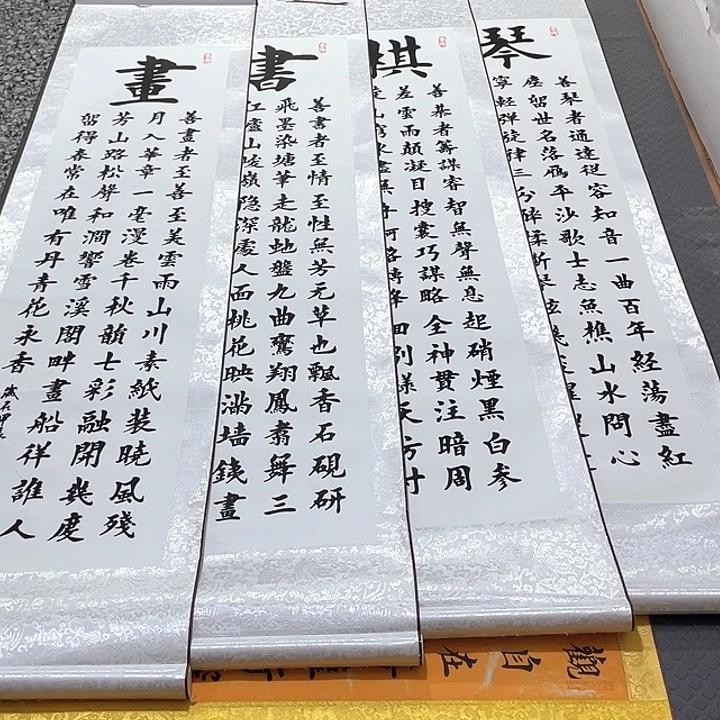 琴
善琴者通達從容知音一曲百年經蕩盡紅
塵留世名落雁平沙歌士志魚樵山水問心
寧輕彈旋律三分醉揉斷琴弦幾
棋
善棊者籌謀睿智無聲無息起硝煙黑白參
差雲雨顛凝目搜囊巧謀略全神貫注暗周
旋山窮水盡無路轉峰回別樣天方寸
書
善書者至情至性無芳无草也飄香石硯研
飛墨染塘筆走龍虵盤九曲鸞翔鳳翥舞三
江廬山峻嶺隐深處人面桃花映滿墻鐵畫
畫
善畫者至善至美雲雨山川素紙裝曉風殘
月入華章一毫漫卷千秋韻七彩融開幾度
芳山路松聲和澗響雪溪閣畔畫船徉誰人
留得春常在唯有丹青花永香
歲在甲辰
觀自在